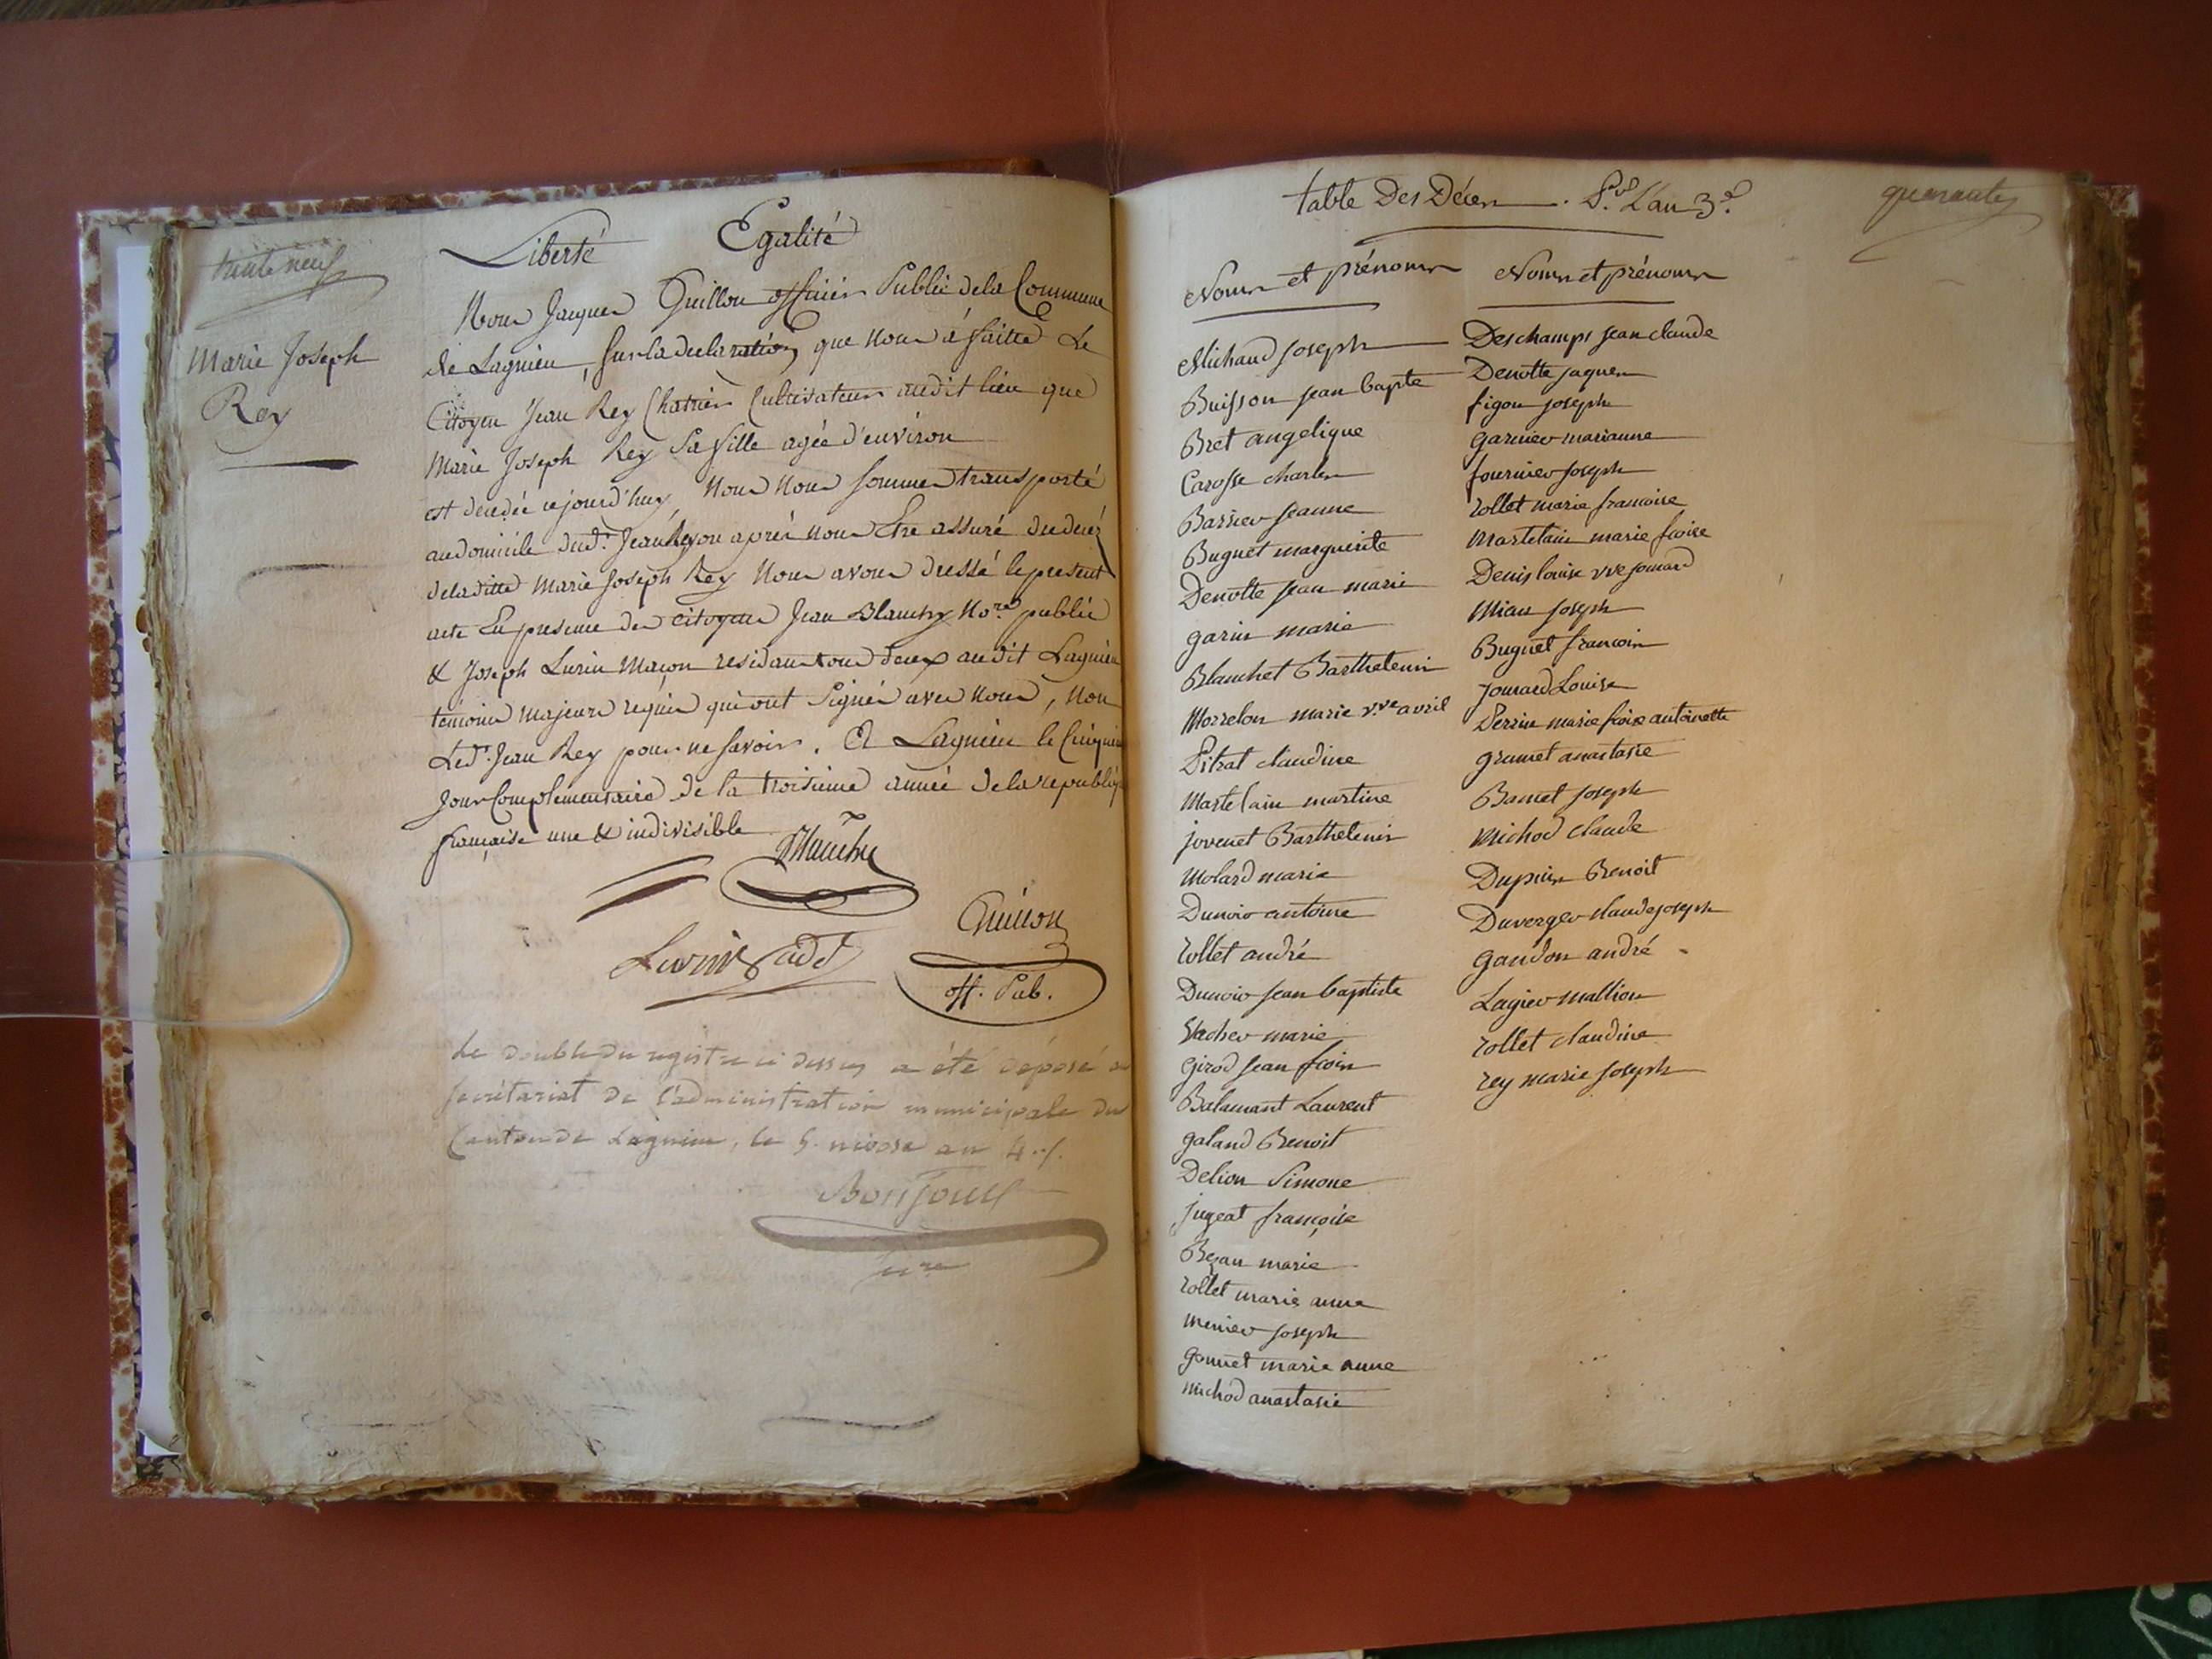 trente neuf
Liberté Egalité
Marie Joseph
Rey
Nous Jacques Guillon officier Public de la Commune
de Lagnieu, sur la declaration que nous à faitte Le
Citoyen Jean Rey Chatrier Cultivateur audit lieu que
Marie Joseph Rey sa fille agée d'environ
est decedée cejourd'huy, Nous Nous sommes transporté
au domicile dud.t Jean Rey ou aprés nous Etre assuré du decéz
de laditte Marie Joseph Rey Nous avons dressé le present
acte En presence des citoyens Jean Blanchy No.re public
& Joseph Lurin Maçon residants tous deux audit Lagnieu
temoins majeurs requis qui ont Signés avec Nous, Non
Led.t Jean Rey pour ne savoir. A Lagnieu le Cinquie
Jour Complémentaire de la troisieme année de la republiq
française une & indivisible
Blanchy
Guillon
Lurin
off. Pub.
Le double du registre ci dessus a été déposé au
secrétariat de l'administration municipale du
Canton de Lagnieu, le 5. nivose an 4../.
quarante
table Des Déces P.r L'an 3.e
Noms et prénoms
Michaud joseph
Buisson jean bapte
Bret angelique
Carosse charles
Barrier jeanne
Buguet marguerite
Denotte jean marie
garin marie
Blanchet Barthelemi
Morrelon marie v.ve avril
Pitrat claudine
Martelain martine
jovenet Barthelemi
Molard marie
Dunoir antoine
rollet andré
Dunoir jean baptiste
Vacher marie
girod jean frois
Balamant Laurent
galand Benoit
Delion Simone
jugeat françoise
Bezan marie
rollet marie anne
menier joseph
gonnet marie anne
michod anastasie
Noms et prénoms
Deschamps jean claude
Denotte jaques
figon joseph
garnier marianne
fournier joseph
rollet marie francoise
Martelain marie froise
Denis louise vve jomard
Mian joseph
Buguet francois
jomard Louise
Perrin marie froise antoinette
grumet anastasie
Bamet joseph
Michod claude
Dupuis Benoit
Duverger claude joseph
gandon andré
Lagier mallion
rollet claudine
rey marie joseph